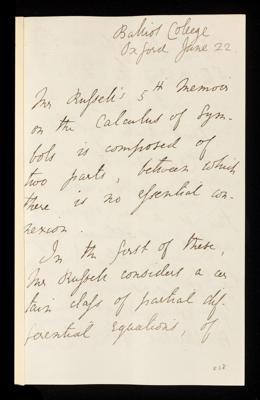 Balliol College
Oxford June 22
Mr Russell's 5th Memoir
on the Calculus of Sym-
bols is composed of
two parts, between which
there is no essential con-
nexion.
In the first of these,
Mr Russell considers a cer
tain class of partial dif-
ferential Equations, of